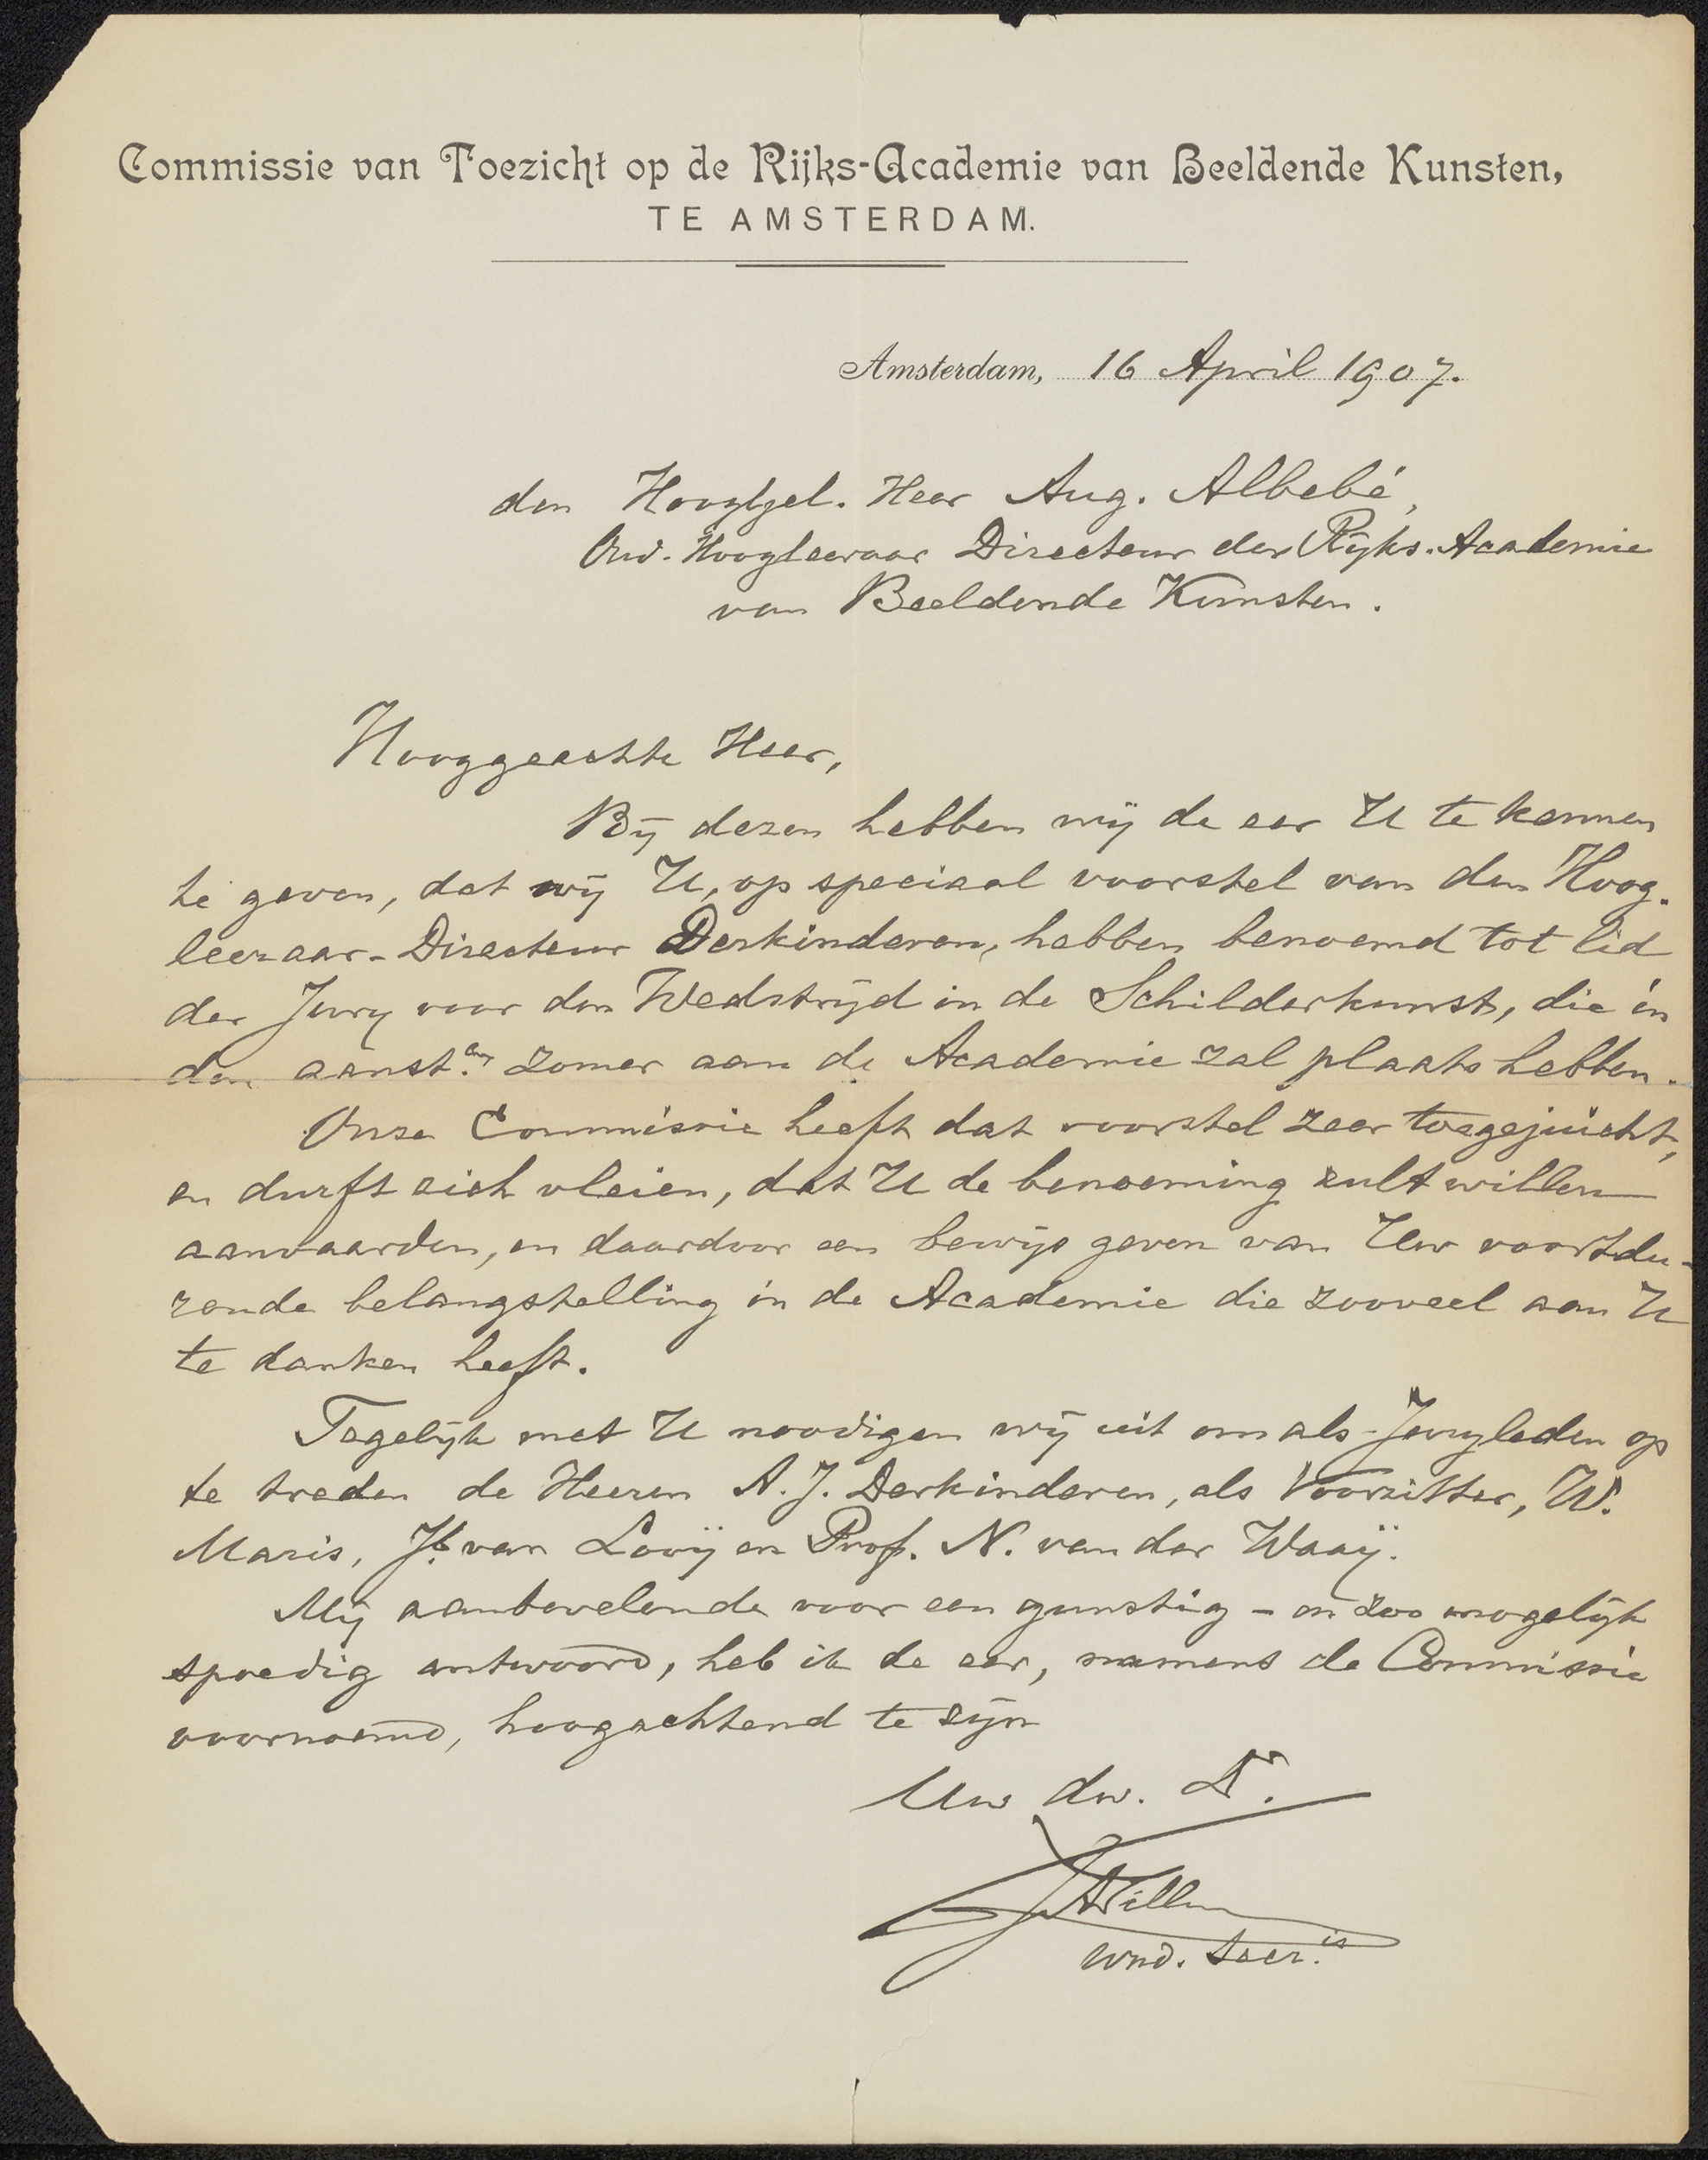 Commissie van Toezicht op de Rijks-Academie van Beeldende Kunsten,
TE AMSTERDAM.
Amsterdam, 16 April 1907.
den Hooggel. Heer Aug. Allebé,
Oud-Hoogleeraar Directeur der Rijks-Academie
van Beeldende Kunsten.
Hooggeachte Heer,
Bij dezen hebben wij de eer U te kennen
te geven, dat wij U, op speciaal voorstel van den Hoog-
leeraar-Directeur Derkinderen, hebben benoemd tot lid
der Jury voor den Wedstrijd in de Schilderkunst, die in
den aanst.en zomer aan de Academie zal plaats hebben.
Onze Commissie heeft dat voorstel zeer toegejuicht,
en durft zich vleien, dat U de benoeming zult willen
aanvaarden, en daardoor een bewijs geven van Uw voortdu-
rende belangstelling in de Academie die zooveel aan U
te danken heeft.
Tegelijk met U noodigen wij uit om als Juryleden op
te treden de Heeren A. J. Derkinderen, als Voorzitter, W.
Maris, Jb. van Looij en Prof. N. van der Waaij.
Mij aanbevelende voor een gunstig - en zoo mogelijk
spoedig antwoord, heb ik de eer, namens de Commissie
voornoemd, hoogachtend te zijn
Uw dw. Dr.
wnd. Secr.is